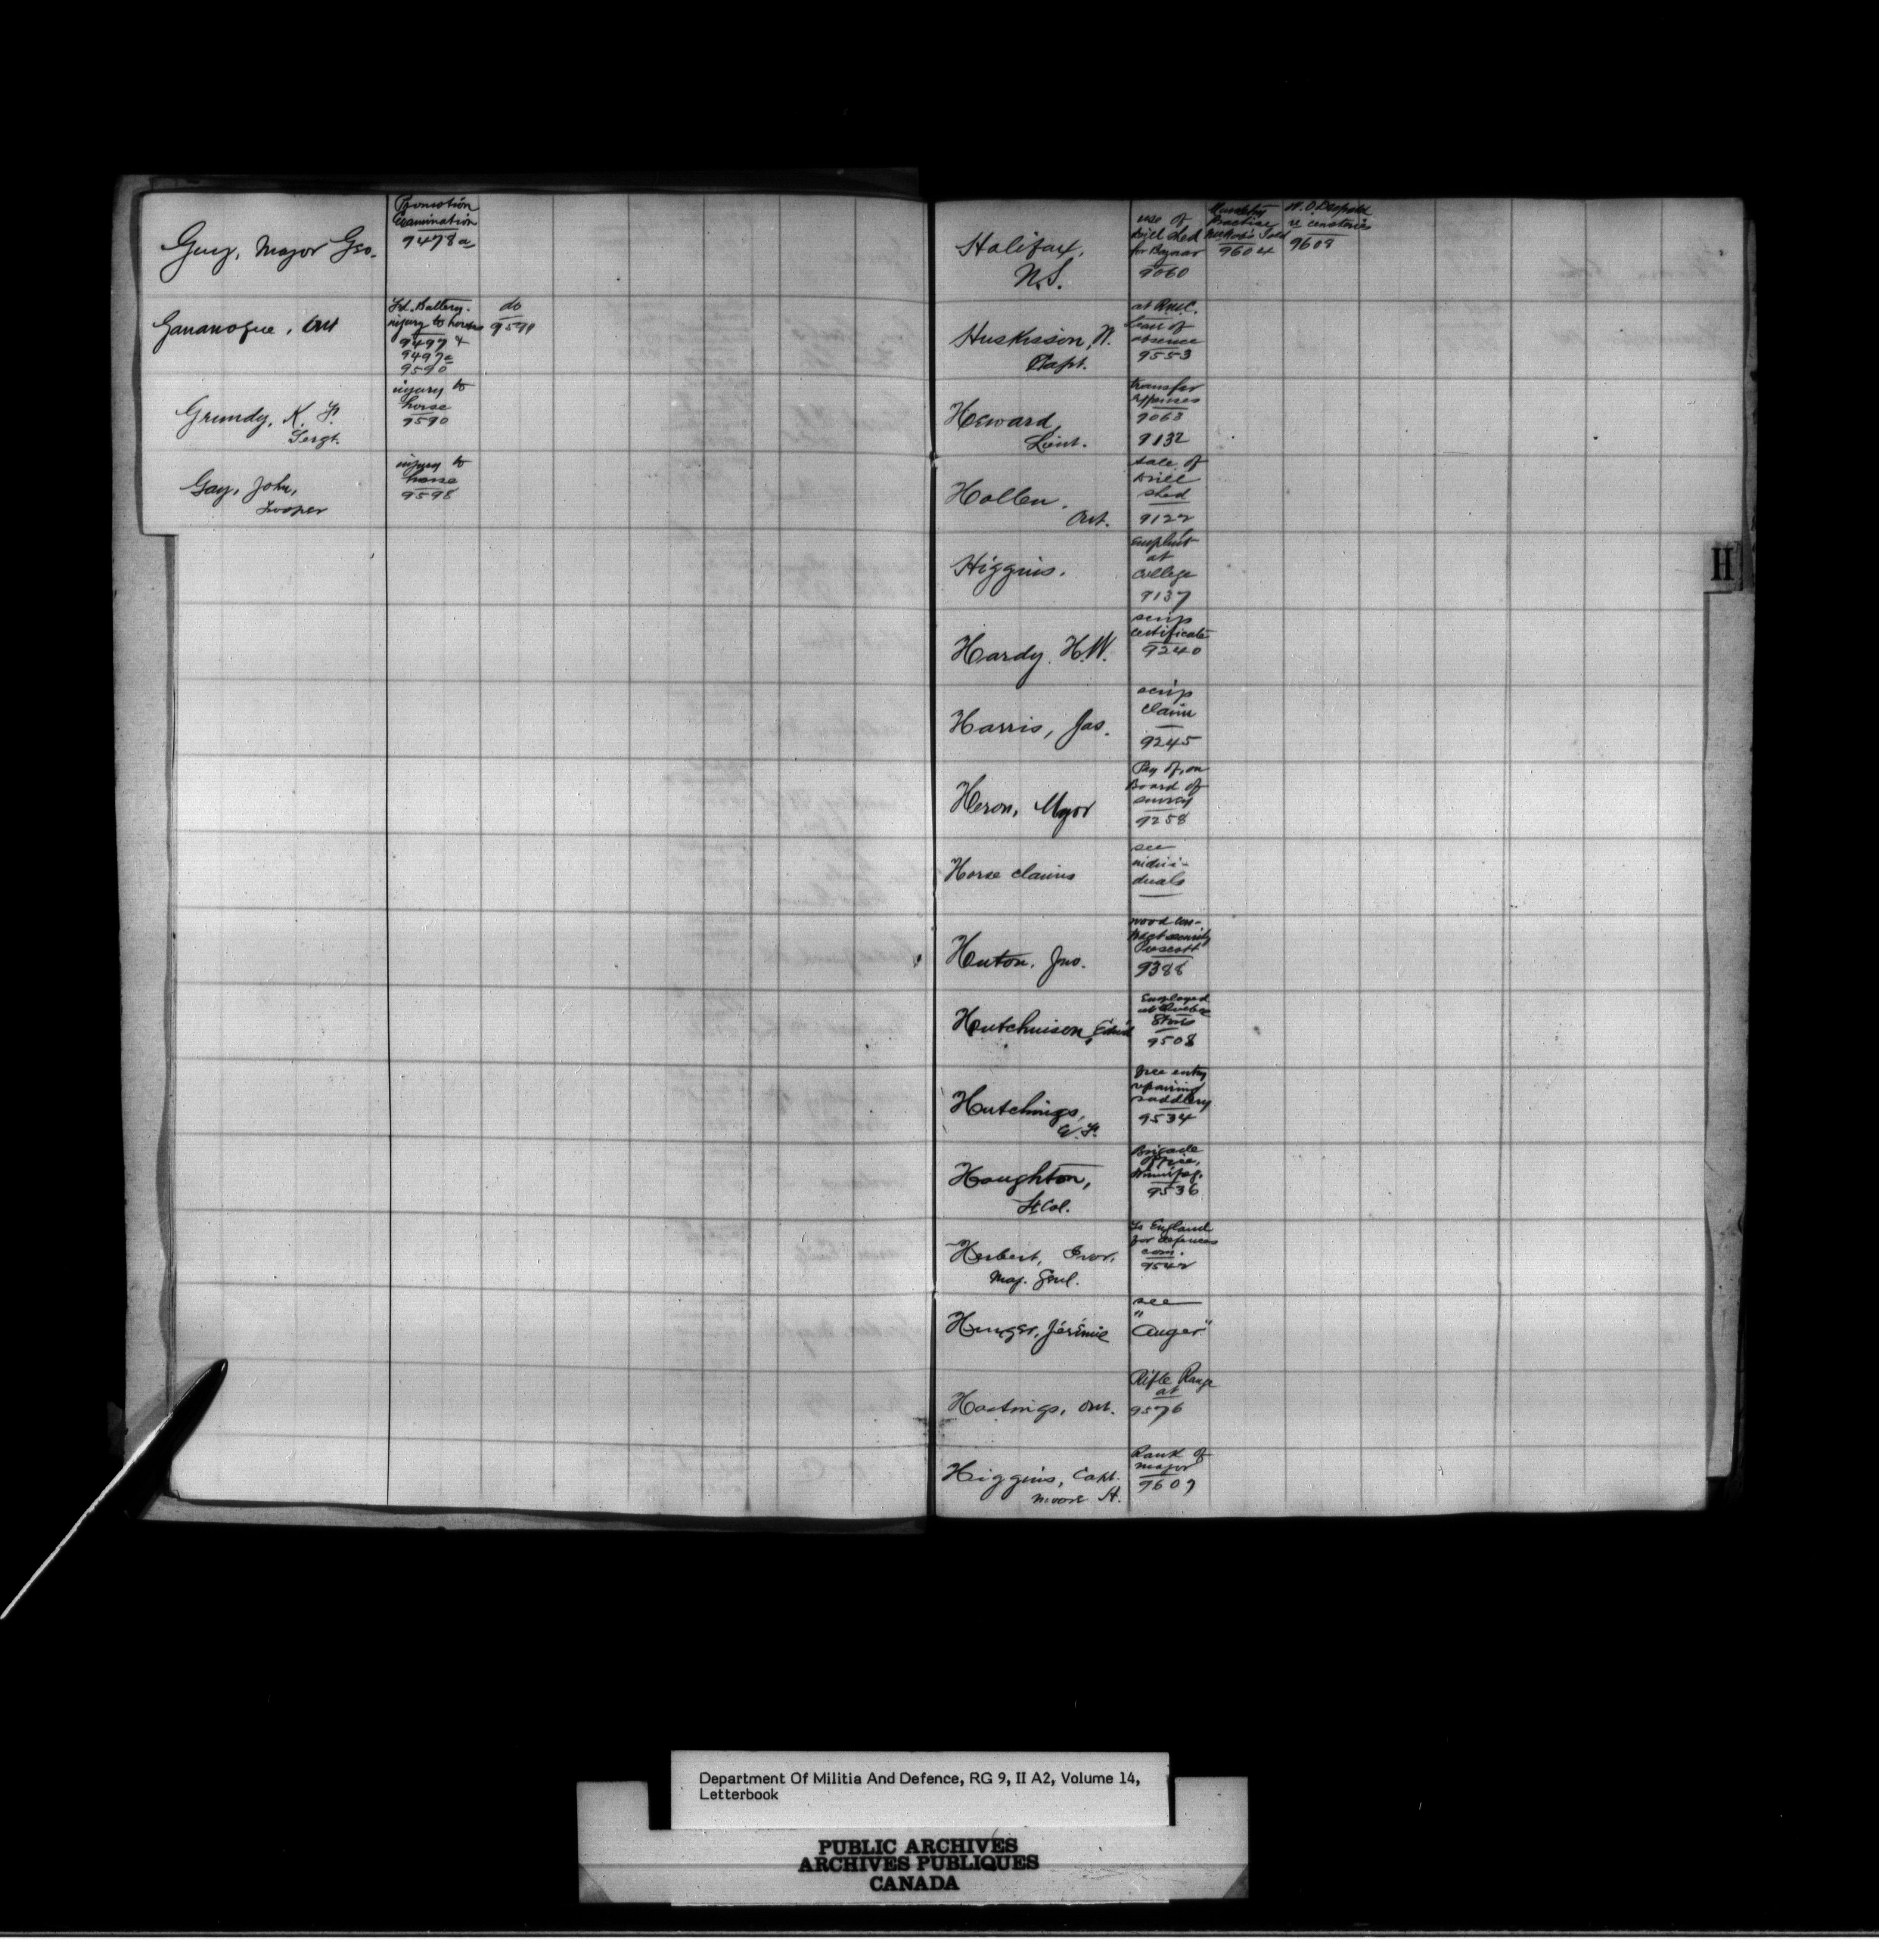 Guy, Major Geo.
Promotion
Examination
9478a
Gananoque, Ont
Fd. Battery.
injury to horses
9497 &
9497a
9590
do
9591
Grundy, K. F.
Sergt.
injury to
horse
9590
Gay, John,
Trooper
injury to
horse
9598
Halifax,
N.S.
use of
Drill shed
for Bazaar
9060
Practice
9604
9609
Huskisson, W.
Capt.
at R.M.C.
leave of
absence
9553
Heward,
Lieut.
transfer
expenses
9063
9132
Hollen,
Ont.
sale of
Drill
shed
9122
Higgins.
at
College
9137
Hardy, H.W.
scrip
certificate
9240
Harris, Jas.
scrip
claim
9245
Heron, Major
Pay of, on
Board of
survey
9258
Horse claims
see
indivi-
duals
Huton, Jno.
wood con-
Prescott
9388
Hutchinson, Edwd
Employed
at Quebec
Stores
9508
Hutchings,
E. F.
free entry
repairing
saddlery
9534
Houghton,
Lt Col.
Brigade
Office,
Winnipeg.
9536
Herbert, Ivor,
Maj. Genl.
to England
for defences
com.
9542
Hunger, Jérémie
see
"
Auger"
Hastings, Ont.
Rifle Range
at
9576
Higgins, Capt.
Moore H.
Rank of
major
9607
H
Department Of Militia And Defence, RG 9, II A2, Volume 14,
Letterbook
PUBLIC ARCHIVES
ARCHIVES PUBLIQUES
CANADA